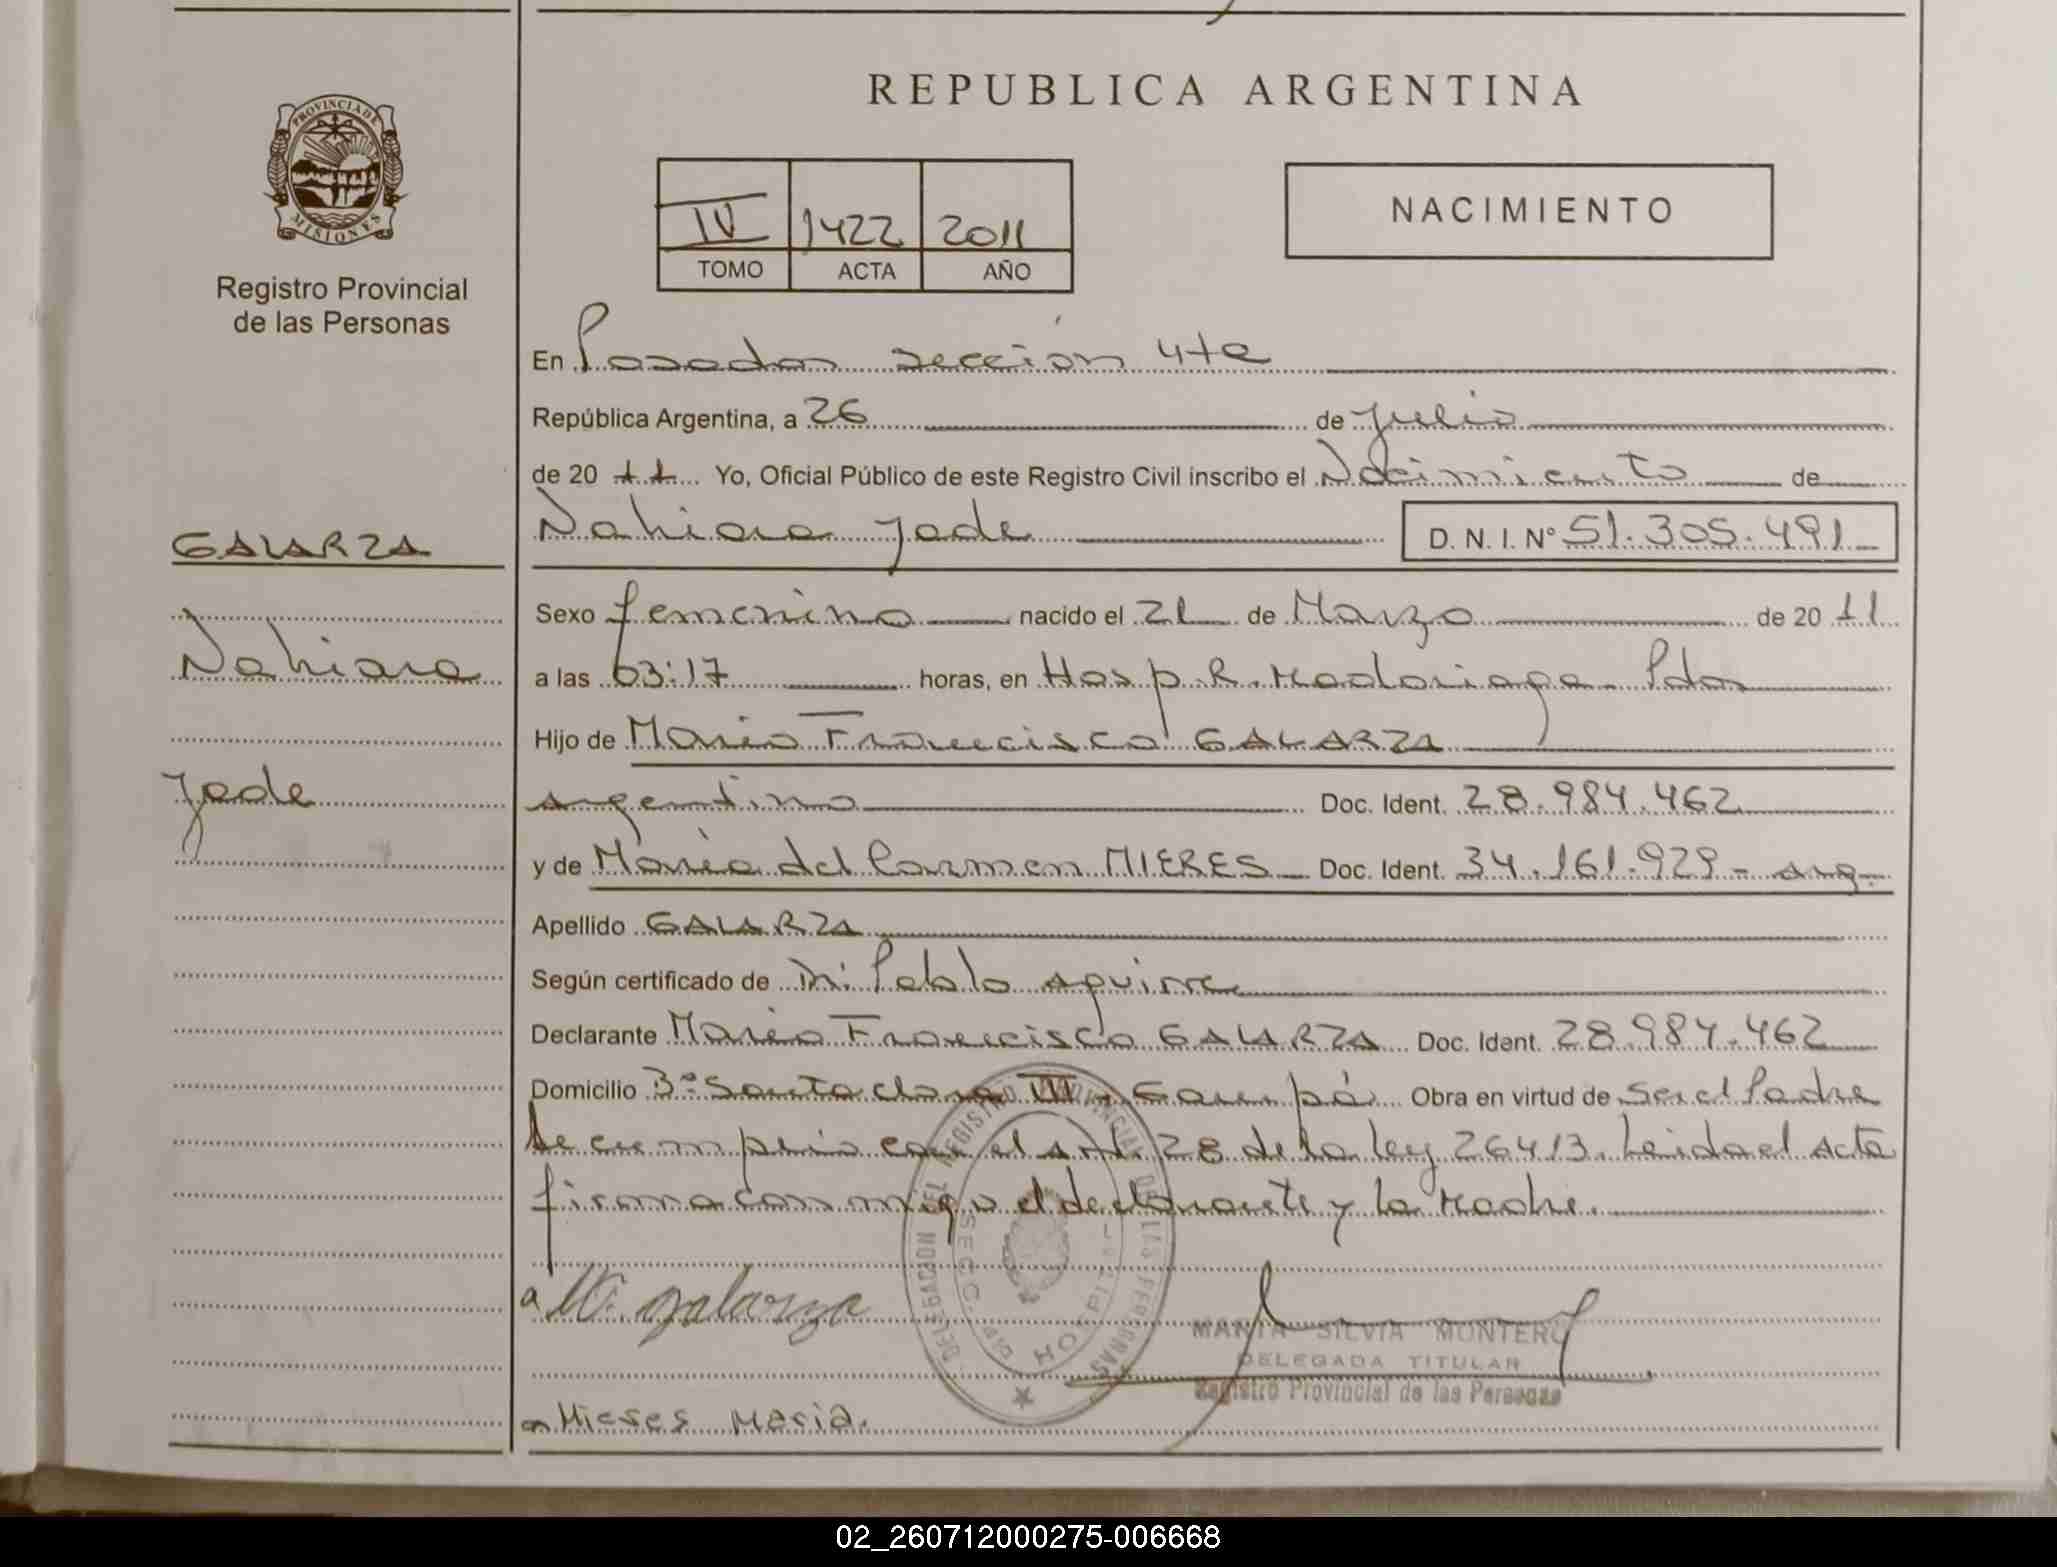 REPUBLICA ARGENTINA
PROVINCIA DE
MISIONES
Registro Provincial
de las Personas
IV 1422 2011
TOMO ACTA AÑO
NACIMIENTO
En Posadas sección 4ta
República Argentina, a 26 de Julio
de 20 11 Yo, Oficial Público de este Registro Civil inscribo el Nacimiento de
Nahiara Jade D. N. I. Nº 51.305.491
GALARZA
Nahiara
Jade
Sexo femenino nacido el 21 de Marzo de 20 11
a las 03:17 horas, en Hosp. R. Madariaga. Pdas
Hijo de Mario Francisco GALARZA
argentino Doc. Ident. 28.984.462
y de María del Carmen MIERES Doc. Ident. 34.161.929 - arg.
Apellido GALARZA
Según certificado de Dr. Pablo Aguirre
Declarante Mario Francisco GALARZA Doc. Ident. 28.984.462
Domicilio Bº Santa Clara III - Garupá Obra en virtud de ser el Padre
Se cumplió con el art. 28 de la ley 26413. Leida el acta
firma conmigo el declarante y la Madre.
a M. galarza
DELEGACION DEL REGISTRO PROVINCIAL DE LAS PERSONAS
SECC. HOSPITAL
MARTA SILVIA MONTERO
DELEGADA TITULAR
Registro Provincial de las Personas
a Mieres Maria.
02_260712000275-006668